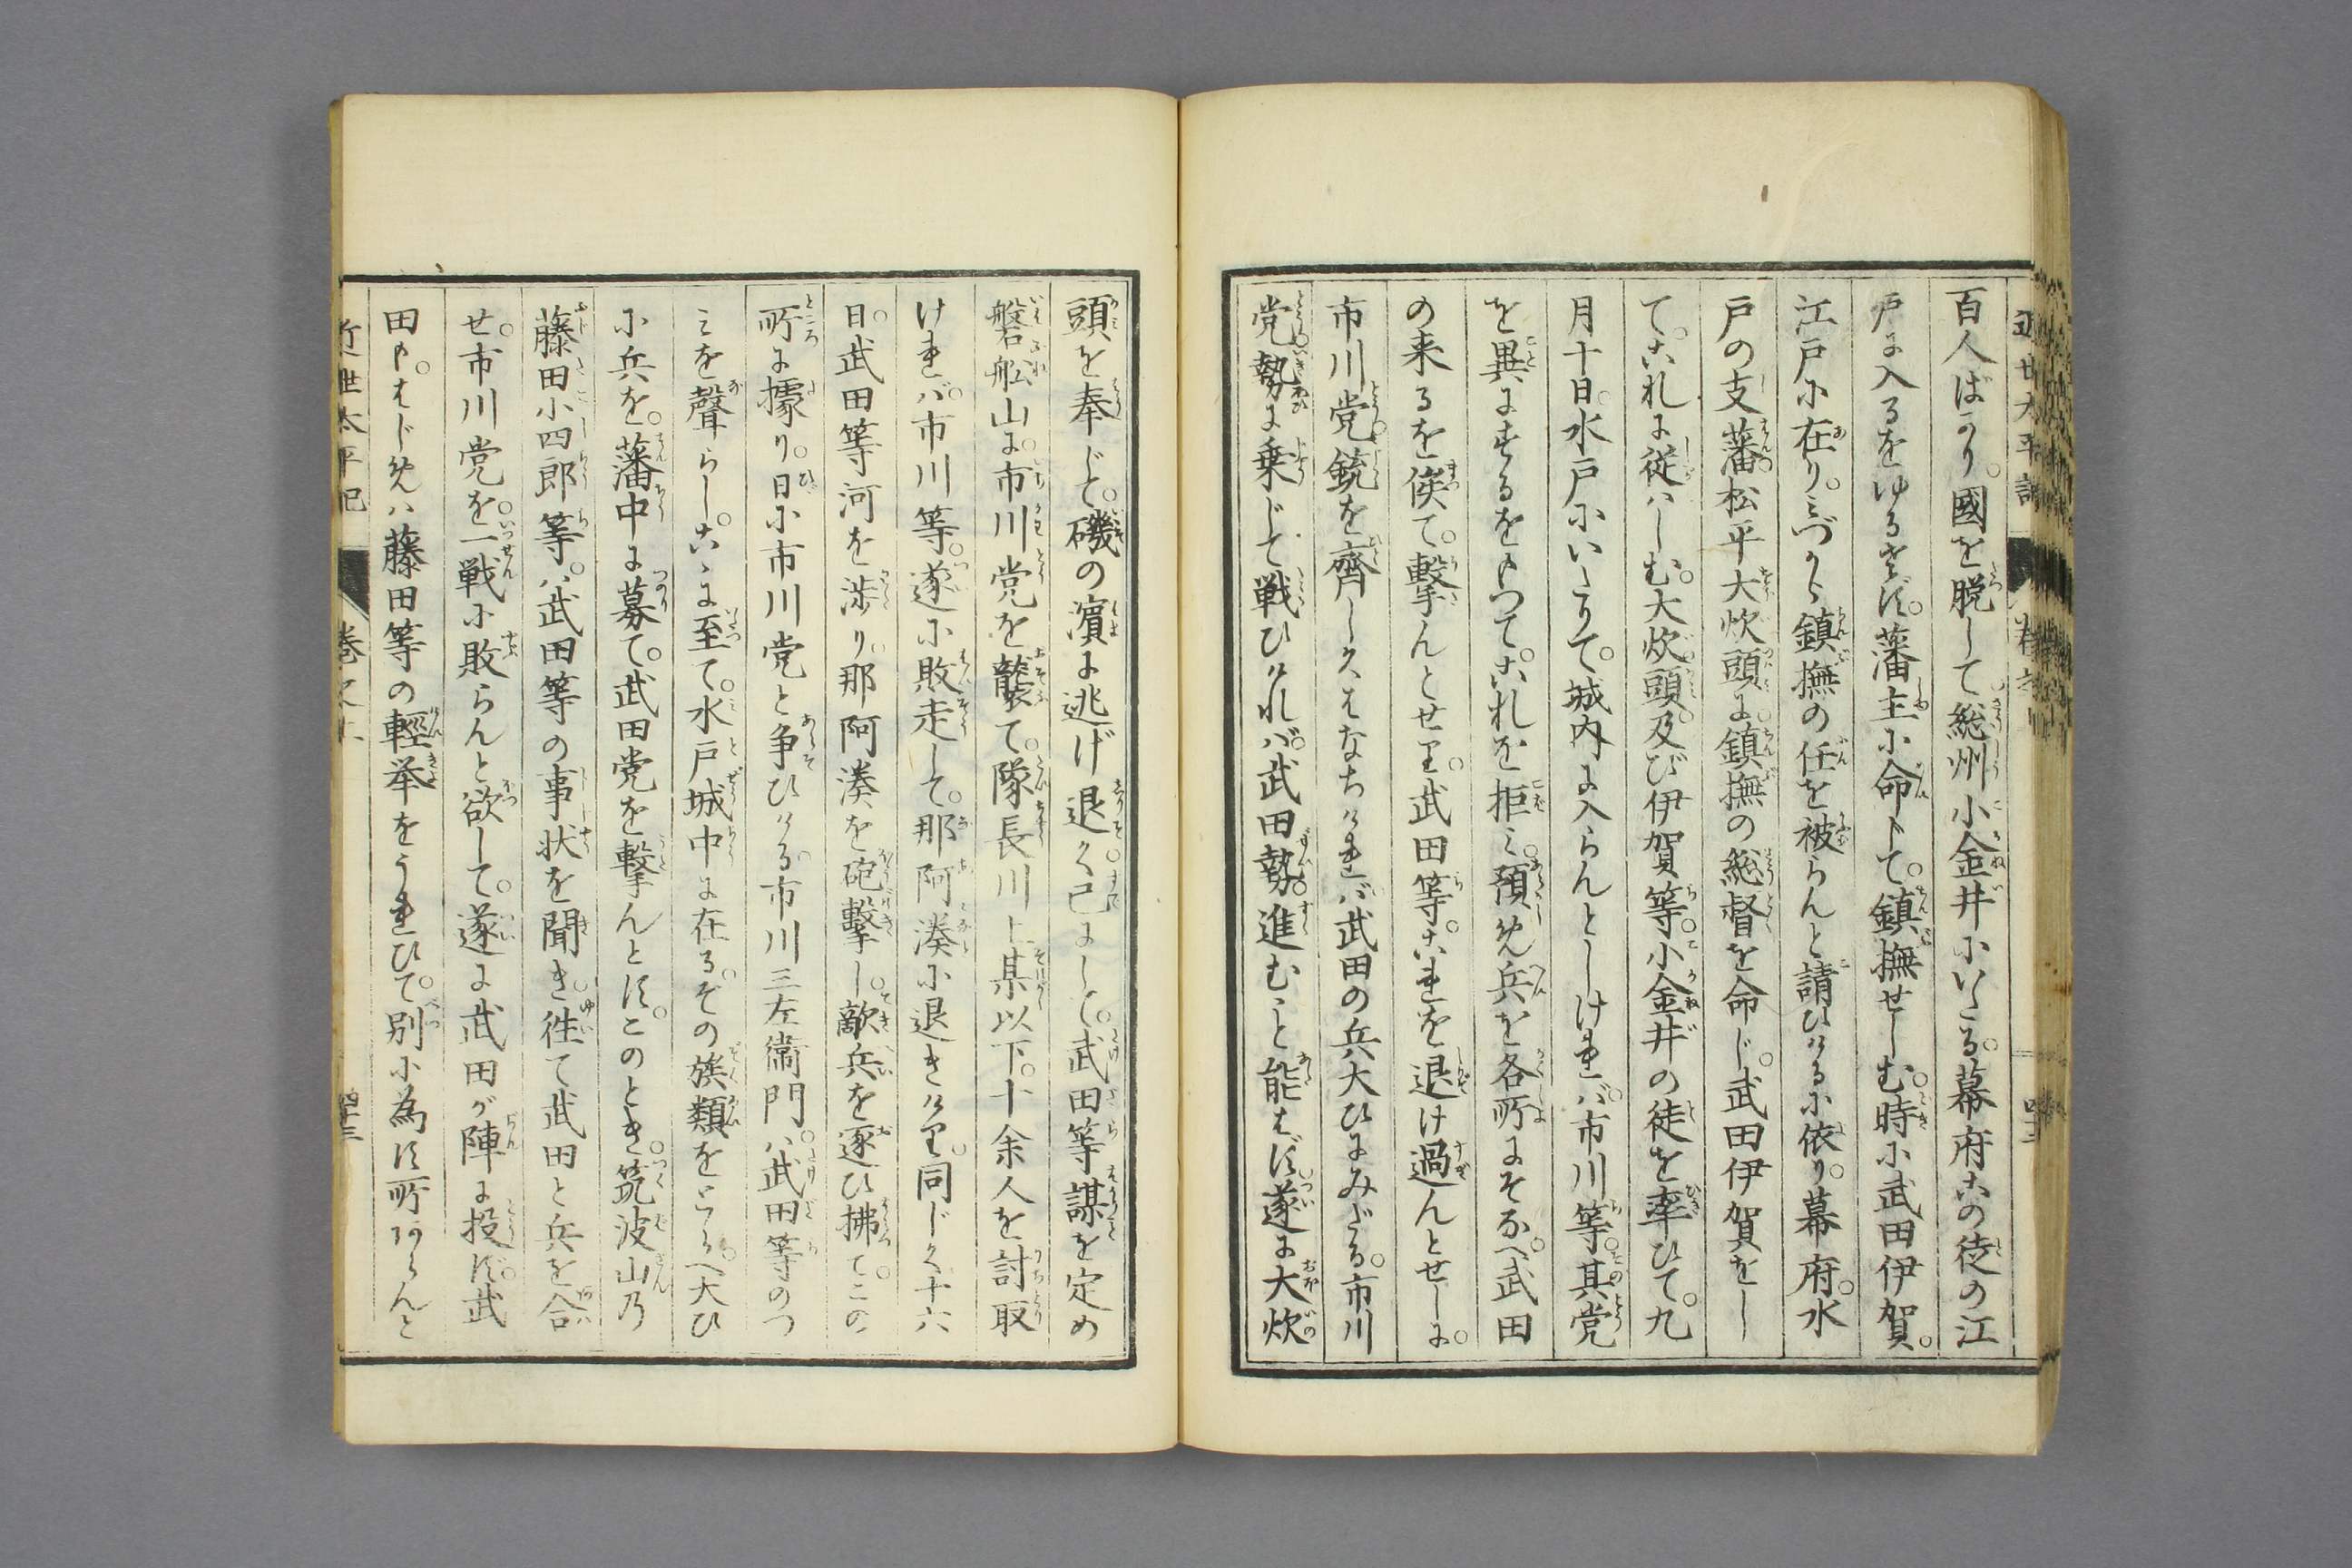 近世太平記
百人ばかり。國を脱して総州小金井にいたる。幕府この徒の江
戸に入るをゆるさず。藩主に命じて。鎮撫せしむ。時に武田伊賀。
江戸に在り。みづから鎮撫の任を被らんと請ひけるに依り。幕府。水
戸の支藩。松平大炊頭に。鎮撫の総督を命じ。武田伊賀をし
て。これに従はしむ。大炊頭。及び伊賀等。小金井の徒を率ひて。九
月十日。水戸にいたりて。城内に入らんとしけれバ。市川等。其党
を異にするをもつて。これを拒み。預め兵を各所にそなへ。武田
の来るを俟て。撃んとせり。武田等。これを退け過んとせしに。
市川党。銃を齊しくはなちけれバ武田の兵大ひにみだる。市川
党。勢に乗じて戦ひけれバ。武田勢。進むこと能はず遂に大炊。
頭を奉じて。磯の濱に逃げ退く。已にして。武田等謀を定め
磐船山に。市川党を襲て。隊長川上某以下。十余人を討取
けれバ。市川等。遂に敗走して。那阿湊に退きけり。同じく十六
日。武田等河を渉り。那阿湊を砲撃し。敵兵を逐ひ拂て。この
所に據り。日に市川党と争ひける。市川三左衛門。ハ武田等のつ
みを聲らし。こゝに至て。水戸城中に在る。その族類をとらへ。大ひ
に兵を。藩中に募て。武田党を撃んとす。このとき。筑波山乃
藤田小四郎等。ハ武田等の事状を聞き。往て武田と兵を合
せ。市川党を。一戦に敗らんと欲して。遂に武田が陣に投ず。武
田も。はじめハ藤田等の輕挙をうれひて。別に為す所あらんと
近世太平記
巻之六
四十三